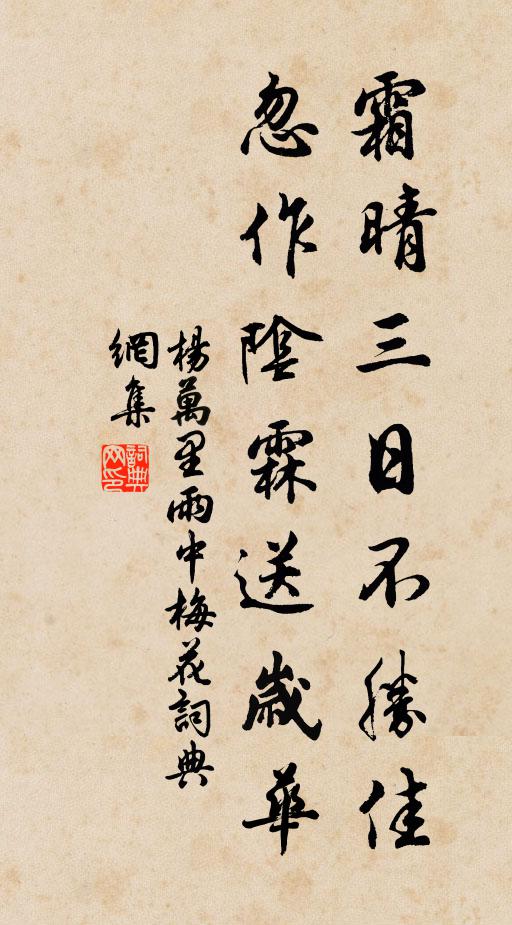 霜晴三日不勝佳
忽作陰霖送歲華
楊萬里雨中梅花詞典
網集
詞典網印